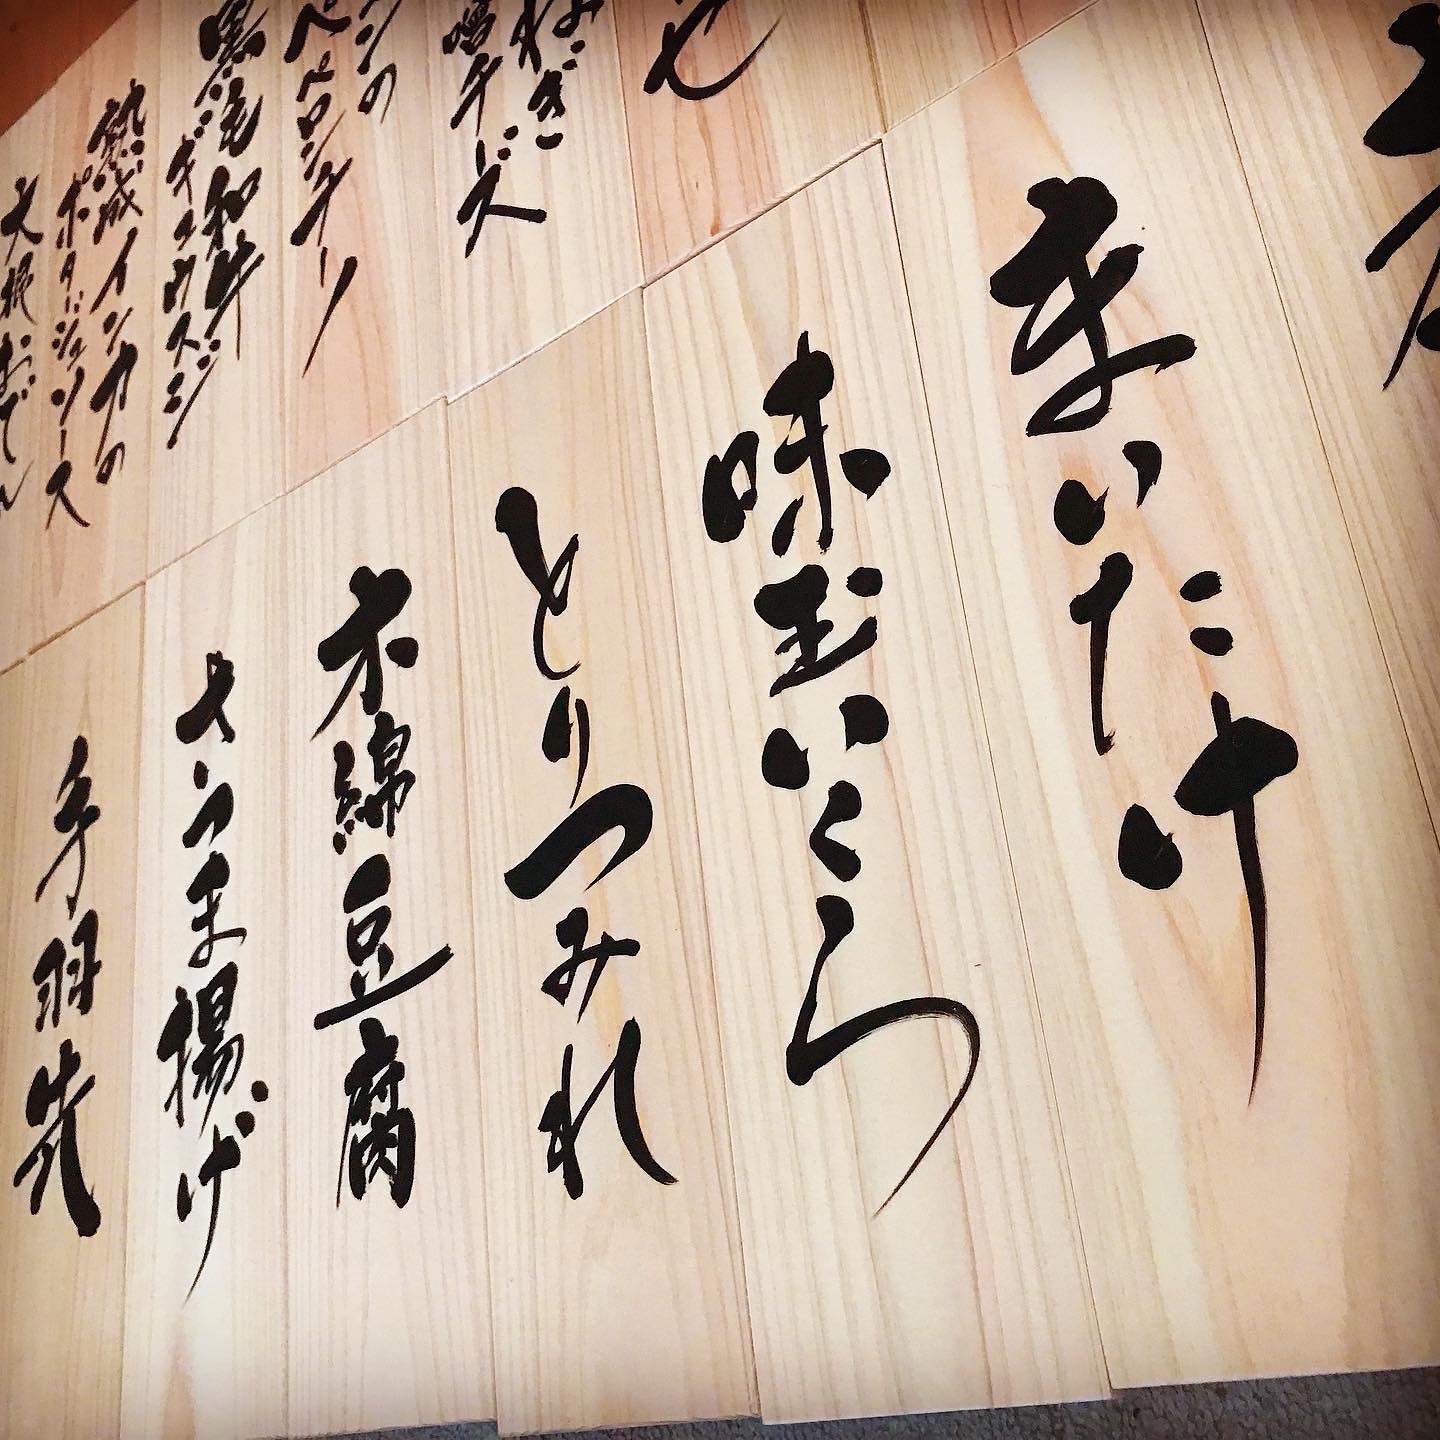 ねぎ
噌チーズ
ンの
ペペロンチーノ
黒毛和牛
ギュウスジ
熟成インカの
ポタージュソース
大根おでん
まいたけ
味玉いくら
とりつみれ
木綿豆腐
さつま揚げ
手羽先